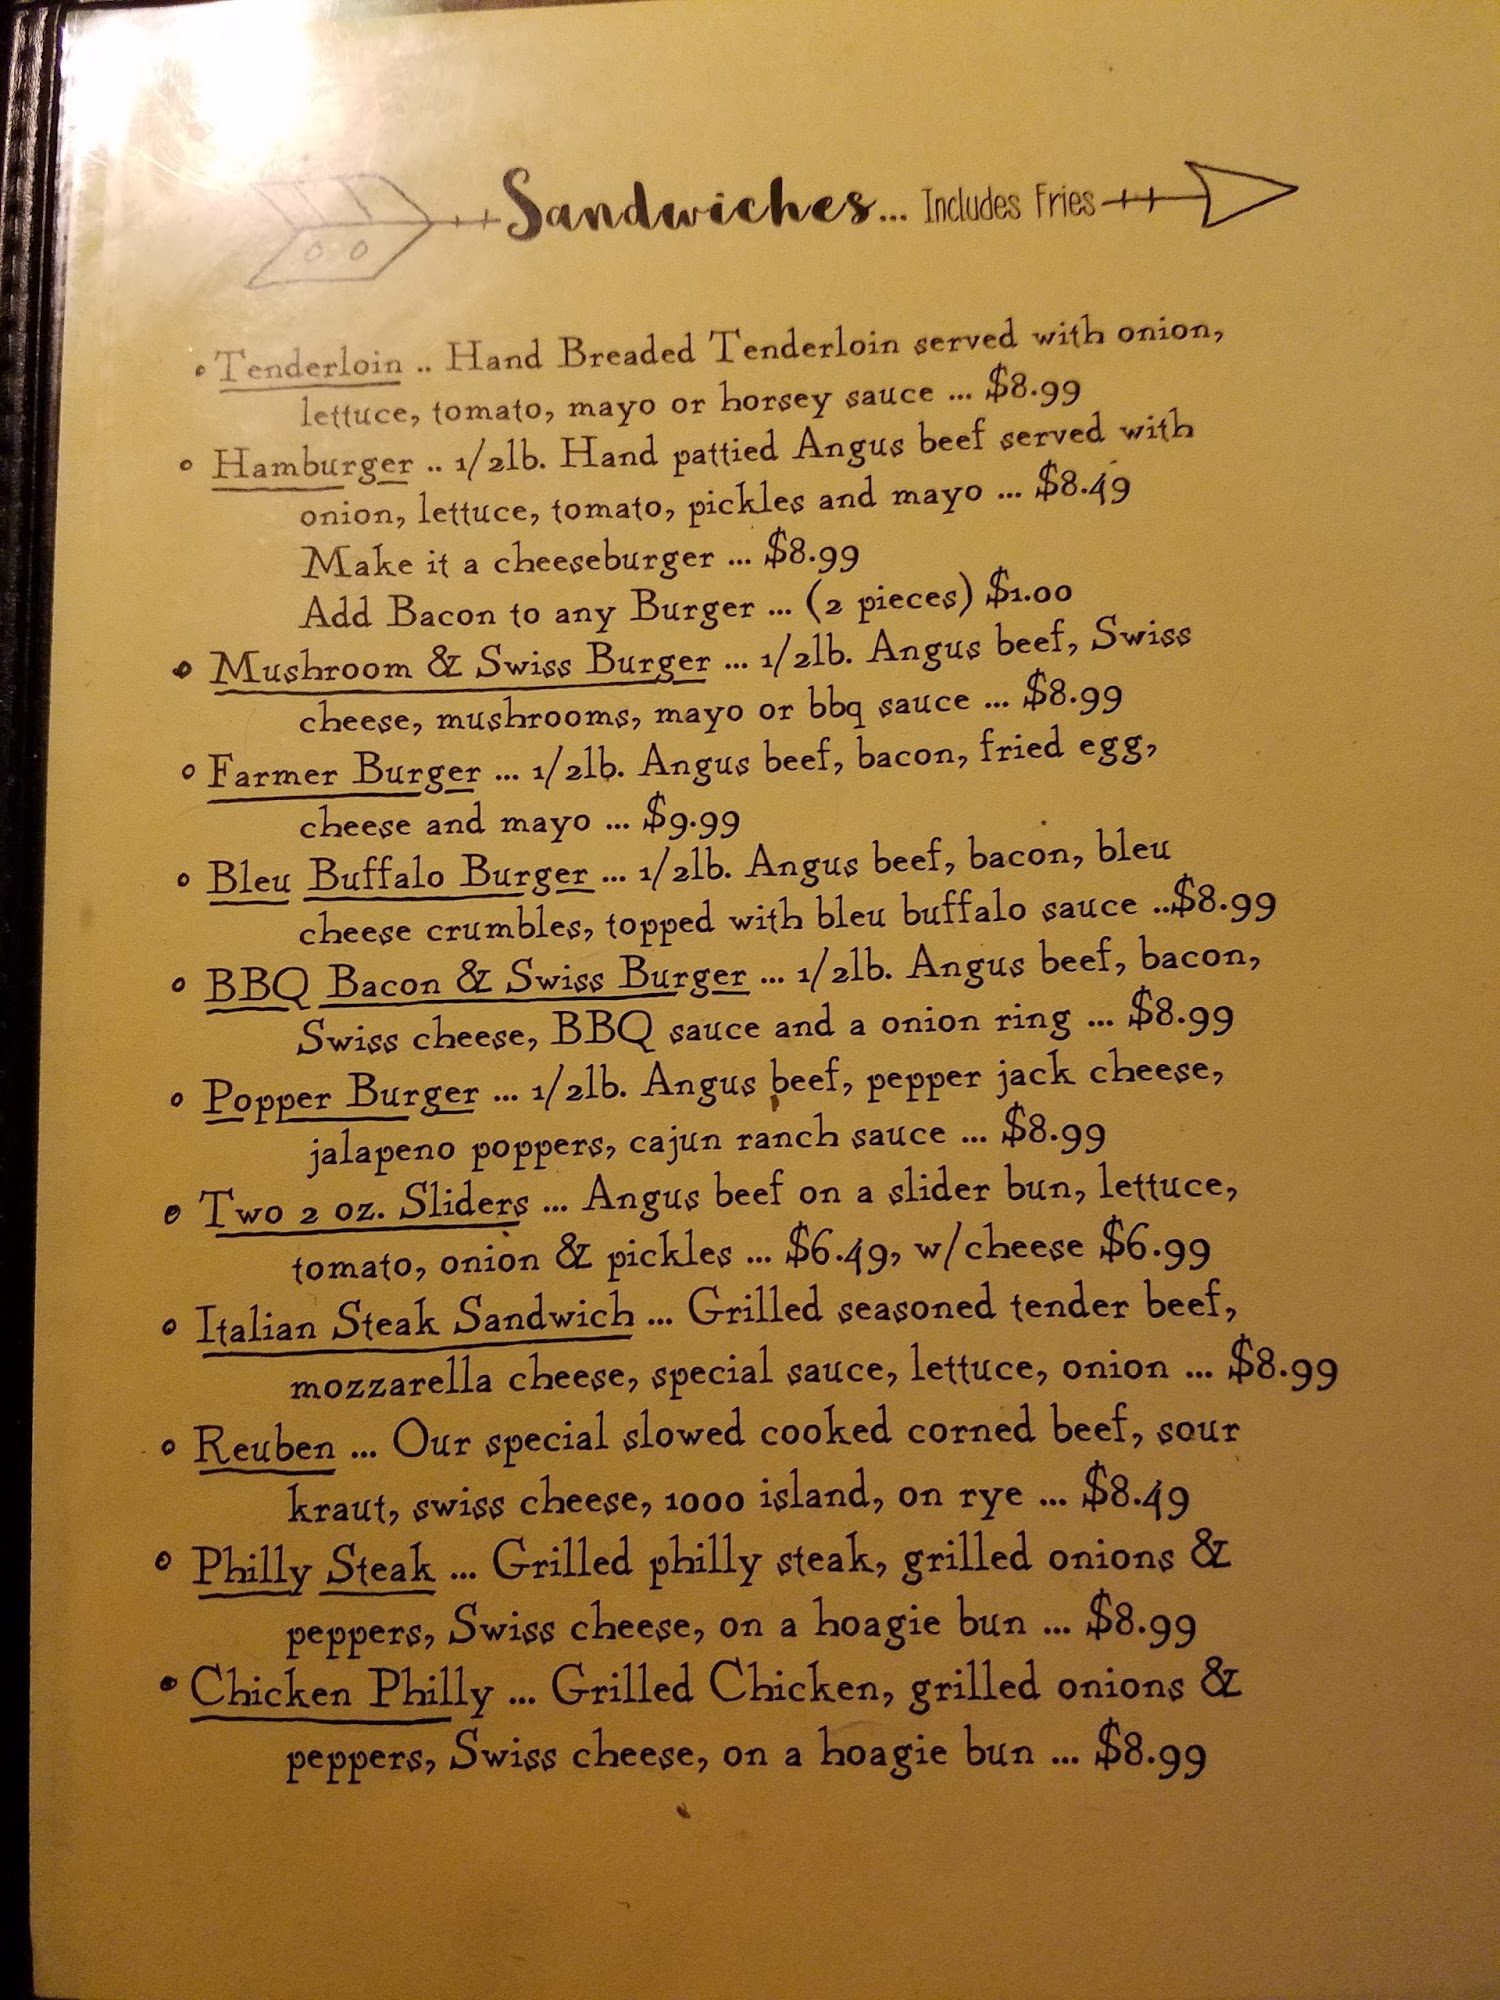 Sandwiches... Includes Fries
• Tenderloin .. Hand Breaded Tenderloin served with onion,
lettuce, tomato, mayo or horsey sauce ... $8.99
• Hamburger .. 1/2lb. Hand pattied Angus beef served with
onion, lettuce, tomato, pickles and mayo ... $8.49
Make it a cheeseburger ... $8.99
Add Bacon to any Burger ... (2 pieces) $1.00
• Mushroom & Swiss Burger ... 1/2lb. Angus beef, Swiss
cheese, mushrooms, mayo or bbq sauce ... $8.99
• Farmer Burger ... 1/2lb. Angus beef, bacon, fried egg,
cheese and mayo ... $9.99
• Bleu Buffalo Burger ... 1/2lb. Angus beef, bacon, bleu
cheese crumbles, topped with bleu buffalo sauce ..$8.99
• BBQ Bacon & Swiss Burger ... 1/2lb. Angus beef, bacon,
Swiss cheese, BBQ sauce and a onion ring ... $8.99
• Popper Burger ... 1/2lb. Angus beef, pepper jack cheese,
jalapeno poppers, cajun ranch sauce ... $8.99
• Two 2 oz. Sliders ... Angus beef on a slider bun, lettuce,
tomato, onion & pickles ... $6.49, w/cheese $6.99
• Italian Steak Sandwich ... Grilled seasoned tender beef,
mozzarella cheese, special sauce, lettuce, onion ... $8.99
• Reuben ... Our special slowed cooked corned beef, sour
kraut, swiss cheese, 1000 island, on rye ... $8.49
• Philly Steak ... Grilled philly steak, grilled onions &
peppers, Swiss cheese, on a hoagie bun ... $8.99
• Chicken Philly ... Grilled Chicken, grilled onions &
peppers, Swiss cheese, on a hoagie bun ... $8.99